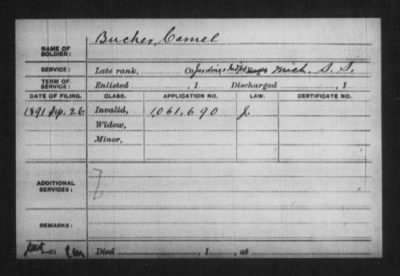 NAME OF SOLDIER: Bucher, Camel
SERVICE: Late rank, Co Mich. S. S.
TERM OF SERVICE: Enlisted , 1 Discharged , 1
DATE OF FILING. CLASS. APPLICATION NO. LAW. CERTIFICATE NO.
1891 Sep. 26 Invalid, 1,061,690
Widow,
Minor,
ADDITIONAL SERVICES:
REMARKS:
Died , 1 , at